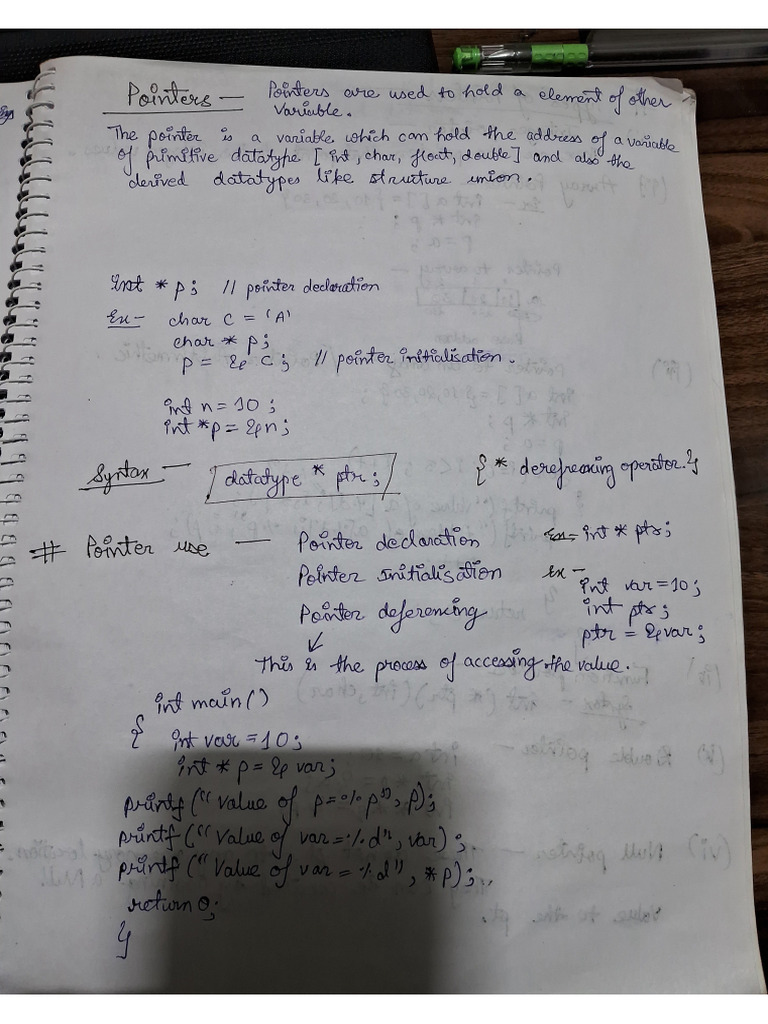 Pointers — Pointers are used to hold a element of other
variable.
The pointer is a variable which can hold the address of a variable
of primitive datatype [int, char, float, double] and also the
derived datatypes like structure union.
Int * p; // pointer declaration
Ex- char c = 'A'
char * p;
p = & c; // pointer initialisation.
int n = 10;
int *p = &n;
Syntax — datatype * ptr; { * derefrensing operator. }
# Pointer use — Pointer declaration Ex- int * ptr;
Pointer Initialisation ex - int var = 10;
int ptr;
Pointer deferencing
ptr = & var;
This is the process of accessing the value.
int main()
{ int var = 10;
int * p = & var;
printf (" Value of p = % p", p);
printf (" Value of var = % d", var) ;
printf (" Value of var = % d", * p);
return 0;
}